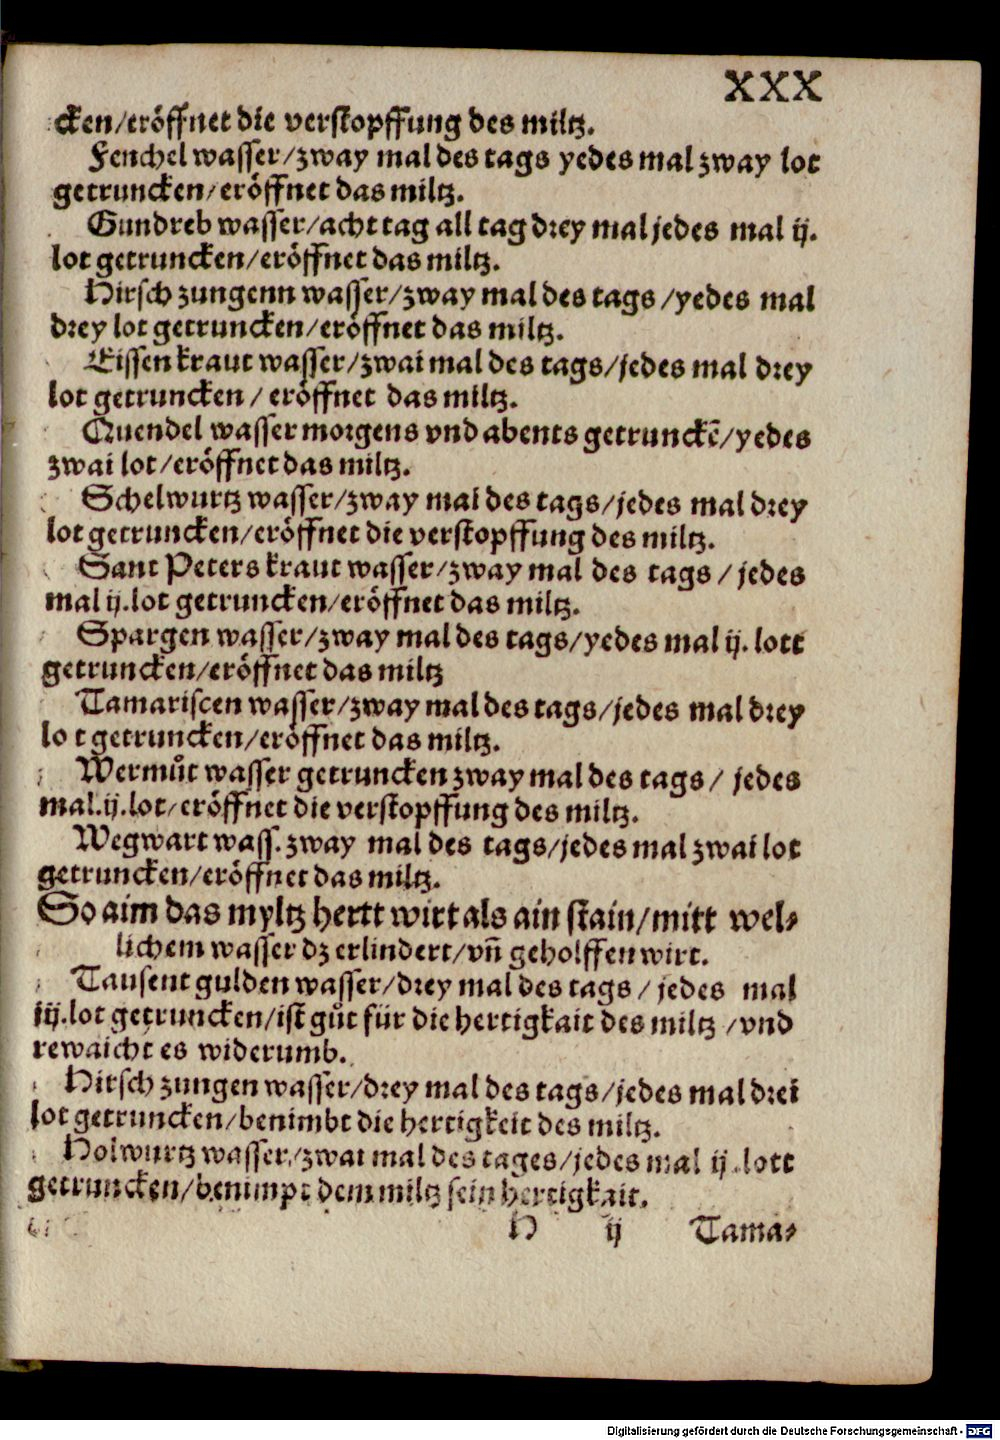 XXX
cken/eröffnet die verstopffung des miltz.
Fenchel wasser/zway mal des tags yedes mal zway lot
getruncken/eröffnet das miltz.
Gundreb wasser/acht tag all tag drey mal jedes mal ij.
lot getruncken/eröffnet das miltz.
Hirsch zungenn wasser/zway mal des tags/yedes mal
drey lot getruncken/eröffnet das miltz.
Eissen kraut wasser/zwai mal des tags/jedes mal drey
lot getruncken/ eröffnet das miltz.
Quendel wasser morgens vnd abents getrunckē/yedes
zwai lot/eröffnet das miltz.
Schelwurtz wasser/zway mal des tags/jedes mal drey
lot getruncken/eröffnet die verstopffung des miltz.
Sant Peters kraut wasser/zway mal des tags/jedes
mal ij.lot getruncken/eröffnet das miltz.
Spargen wasser/zway mal des tags/yedes mal ij. lott
getruncken/eröffnet das miltz
Tamariscen wasser/zway mal des tags/jedes mal drey
lo t getruncken/eröffnet das miltz.
Wermůt wasser getruncken zway mal des tags/ jedes
mal.ij.lot/eröffnet die verstopffung des miltz.
Wegwart wass. zway mal des tags/jedes mal zwai lot
getruncken/eröffnet das miltz.
So aim das myltz hertt wirt als ain stain/mitt wel⸗
lichem wasser dz erlindert/vn̄ geholffen wirt.
Tausent gulden wasser/drey mal des tags/ jedes mal
iij.lot getruncken/ist gůt für die hertigkait des miltz/vnd
rewaicht es widerumb.
Hirsch zungen wasser/drey mal des tags/jedes mal drei
lot getruncken/benimbt die hertigkeit des miltz.
Holwurtz wasser/zwai mal des tages/jedes mal ij.lott
getruncken/benimpt dem miltz sein hertigkait.
H ij Tama⸗
Digitalisierung gefördert durch die Deutsche Forschungsgemeinschaft - DFG